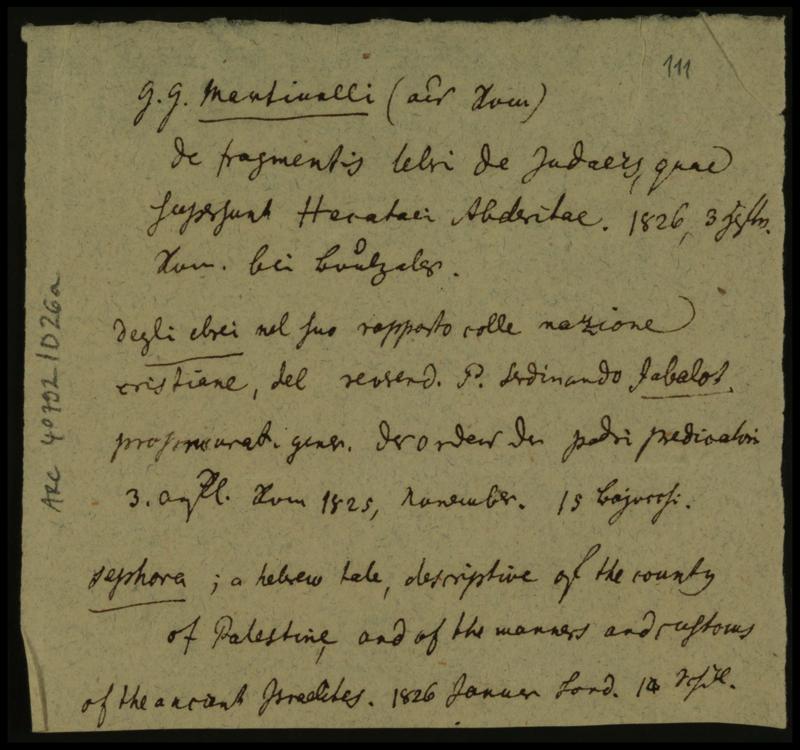 111
G. G. Martinelli (aus Rom)
de fragmentis lebri de Judaeis, quae
supersunt Hecataei Abderitae. 1826, 3
Rom. bei Bourlzaler.
degli ebrei nel suo rapporto colle nazione
cristiane, del reverend. P. Ferdinando Jabalot,
gener. der ordew der padri predicatori
3. Aufl. Rom 1825, November. 15 Bajocchi.
Sephora ; a hebrew tale, descriptive of the county
of Palestine, and of the manners and customs
of the ancient Israelites. 1826 Januar Lond. 14 Schill.
ARC 40792/D26a